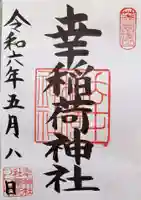 幸稲荷神社
令和六年五月八日